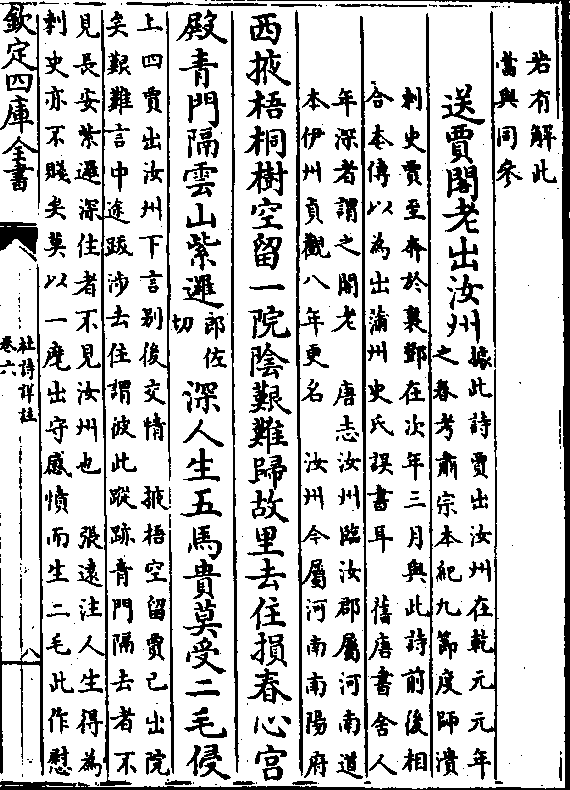 若有解此
當與同參
送賈閣老出汝州
據此詩賈出汝州在乾元元年
之春考肅宗本紀九節度師潰
刺史賈至奔於襄鄧在次年三月與此詩前後相
合本傳以為出蒲州史氏誤書耳 舊唐書舍人
年深者謂之閣老 唐志汝州臨汝郡屬河南道
本伊州貞觀八年更名 汝州今屬河南南陽府
西掖梧桐樹空留一院陰艱難歸故里去住損春心宮
殿青門隔雲山紫邏
郎佐
切
深人生五馬貴莫受二毛侵
上四賈出汝州下言别後交情 掖梧空留賈已出院
矣艱難言中途跋涉去住謂彼此蹤跡青門隔去者不
見長安紫邏深住者不見汝州也 張遠注人生得為
刺史亦不賤矣莫以一麾出守感憤而生二毛此作慰
欽定四庫全書
杜詩詳註
卷六
八